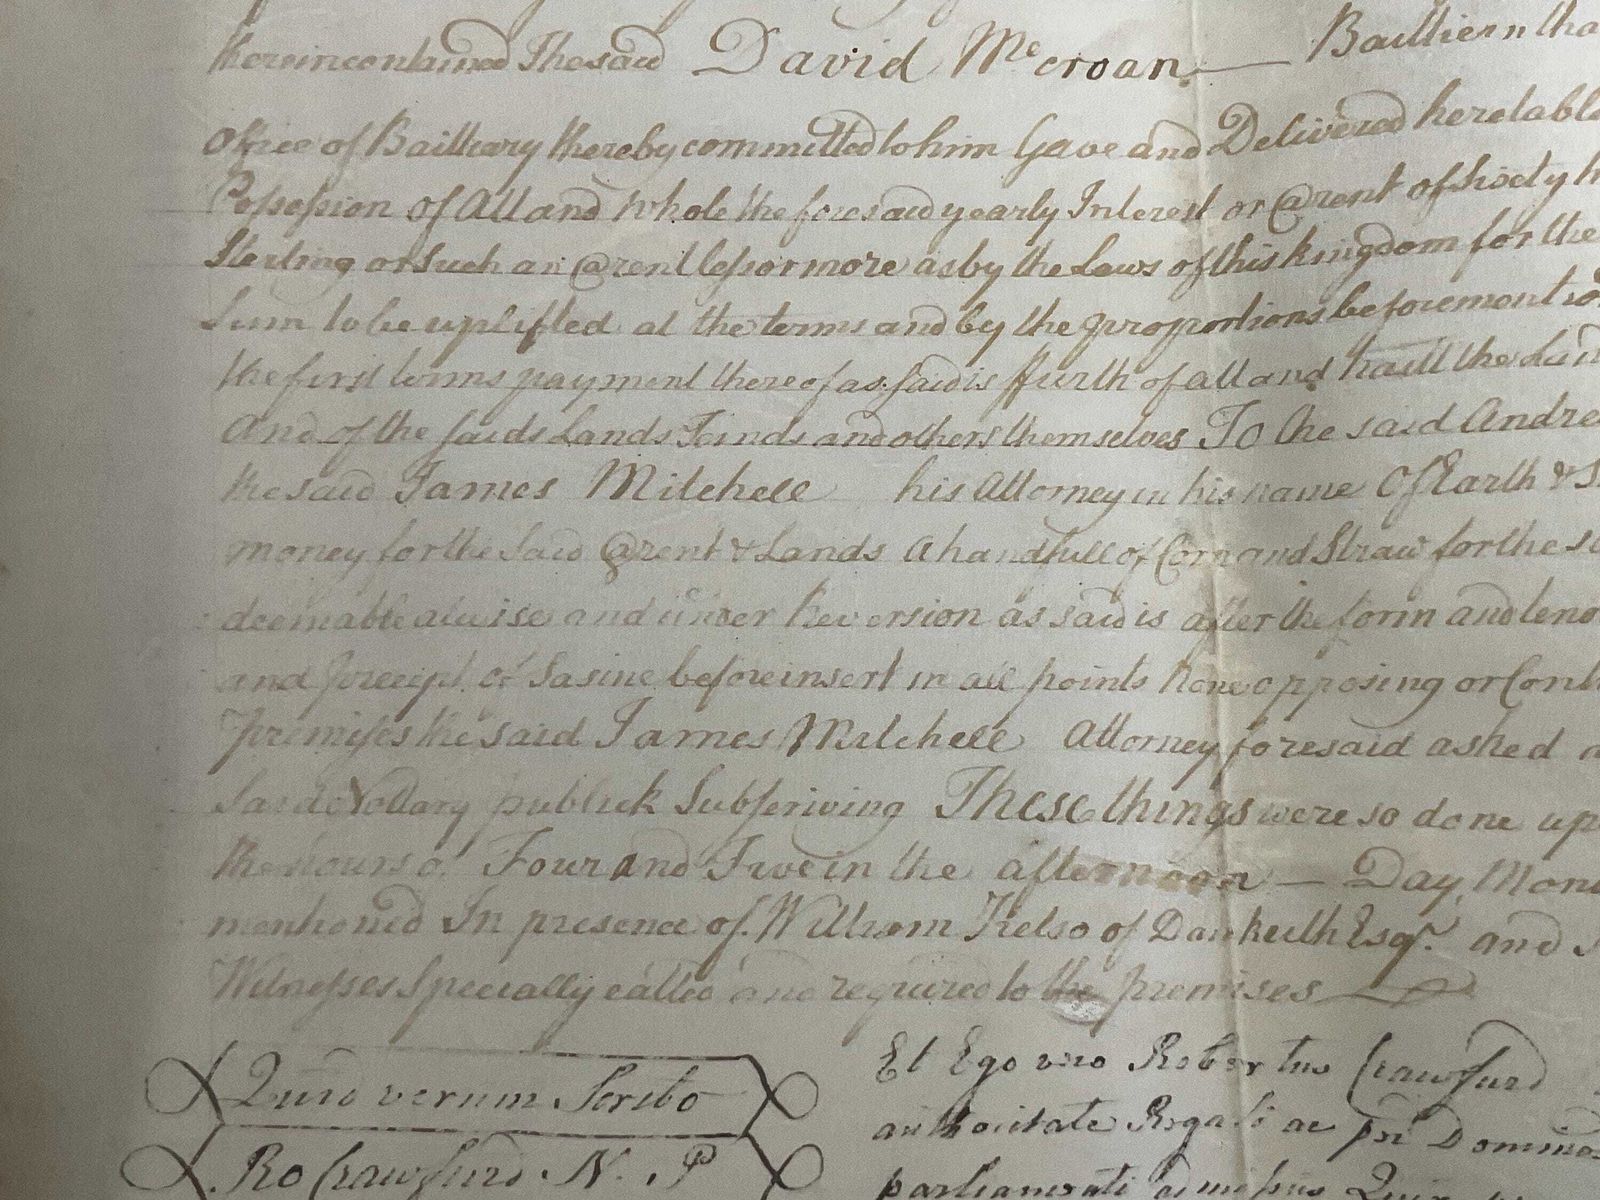 thereincontained The said David Mc.croan Bailliein tha
Office of Bailliary thereby committed to him Gave and Delivered heretable
Possession of All and Whole the foresaid yearly Interest or @rent of sixty
Sterling or such an @rent less or more as by the Laws of this kingdom for the
Sum to be uplifted at the terms and by the proportions beforement
the first terms payment thereof as said is ffurth of all and haill the Land
And of the saids Lands Teinds and others themselves To the said Andre
the said James Mitchell his Attorney in his name Of Earth & S
money for the said @rent & Lands A handfull of Corn and Straw for the s
deemable alwise and under Reversion as said is after the form and teno
and preceipt of Sasine before insert in all points None opposing or Cont
premisses the said James Mitchell Attorney foresaid asked a
said Nottary publick Subscriving These things were so done up
the hours of Four and Five in the afternoon — Day, Mon
mentioned In presence of William Kelso of Dankeith Esqr. and
Witnesses specially called and required to the premises
Et Ego vero Robertus Crawfurd
authoritate Regali ac per Dominos
parliamenti admissus
Quod verum Scribo
Ro Crawfurd N. P